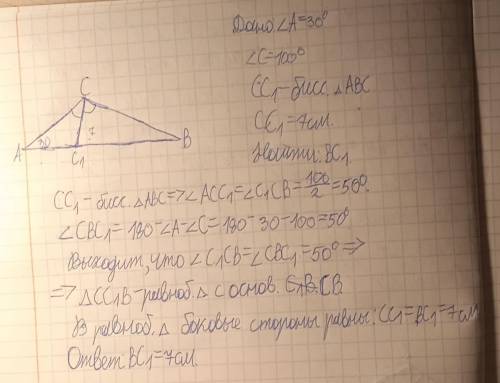 Дано: ∠A=30°
∠C=100°
CC₁-бисс. △ABC
CC₁=7см.
Найти: BC₁
C
30
7
A
C₁
B
CC₁-бисс. △ABC=>∠ACC₁=∠C₁CB=100/2=50°.
∠CBC₁=180-∠A-∠C=180-30-100=50°
Выходит, что ∠C₁CB=∠CBC₁=50° =>
=> △CC₁B-равноб. △ с основ. CB
В равноб. △ боковые стороны равны: CC₁=BC₁=7см
Ответ: BC₁=7см.